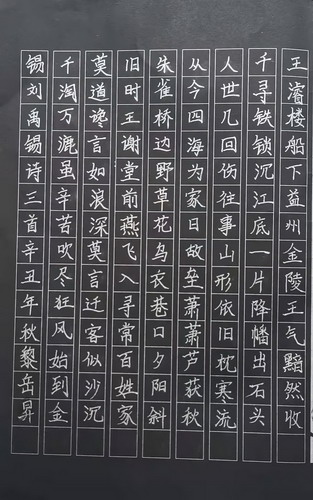 王濬楼船下益州金陵王气黯然收
千寻铁锁沉江底一片降幡出石头
人世几回伤往事山形依旧枕寒流
从今四海为家日故垒萧萧芦荻秋
朱雀桥边野草花乌衣巷口夕阳斜
旧时王谢堂前燕飞入寻常百姓家
莫道谗言如浪深莫言迁客似沙沉
千淘万漉虽辛苦吹尽狂风始到金
锡刘禹锡诗三首辛丑年秋黎岳昇